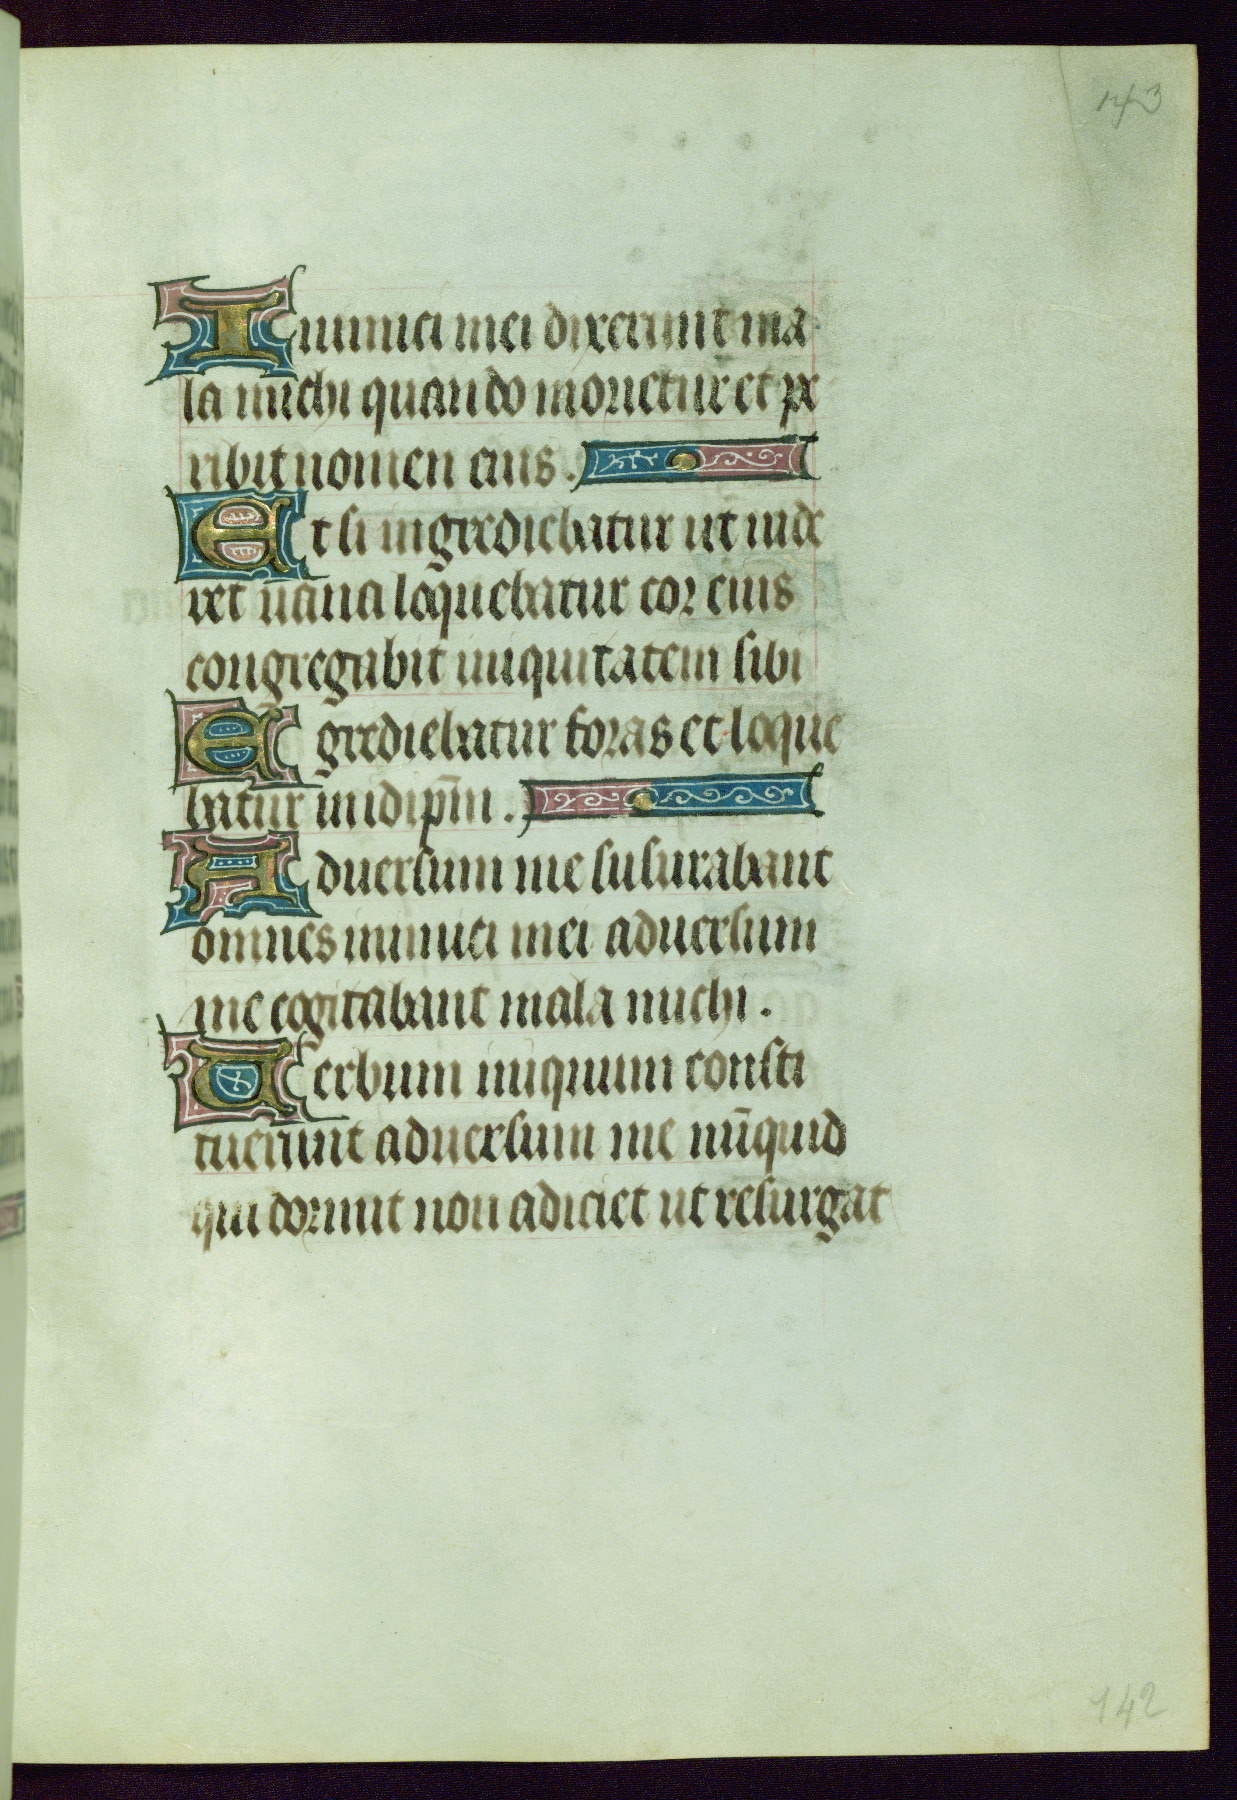 143
Inimici mei dixerunt ma
la michi quando morietur et pe
ribit nomen eius.
Et si ingrediebatur ut uide
ret uana loquebatur cor eius
congregabit iniquitatem sibi
Egrediebatur foras et loque
batur in idip̄m.
Aduersum me susurabant
omnes inimici mei aduersum
me cogitabant mala michi.
Uerbum iniquum consti
tuerunt aduersum me nūquid
qui dormit non adiciet ut resurgat
142